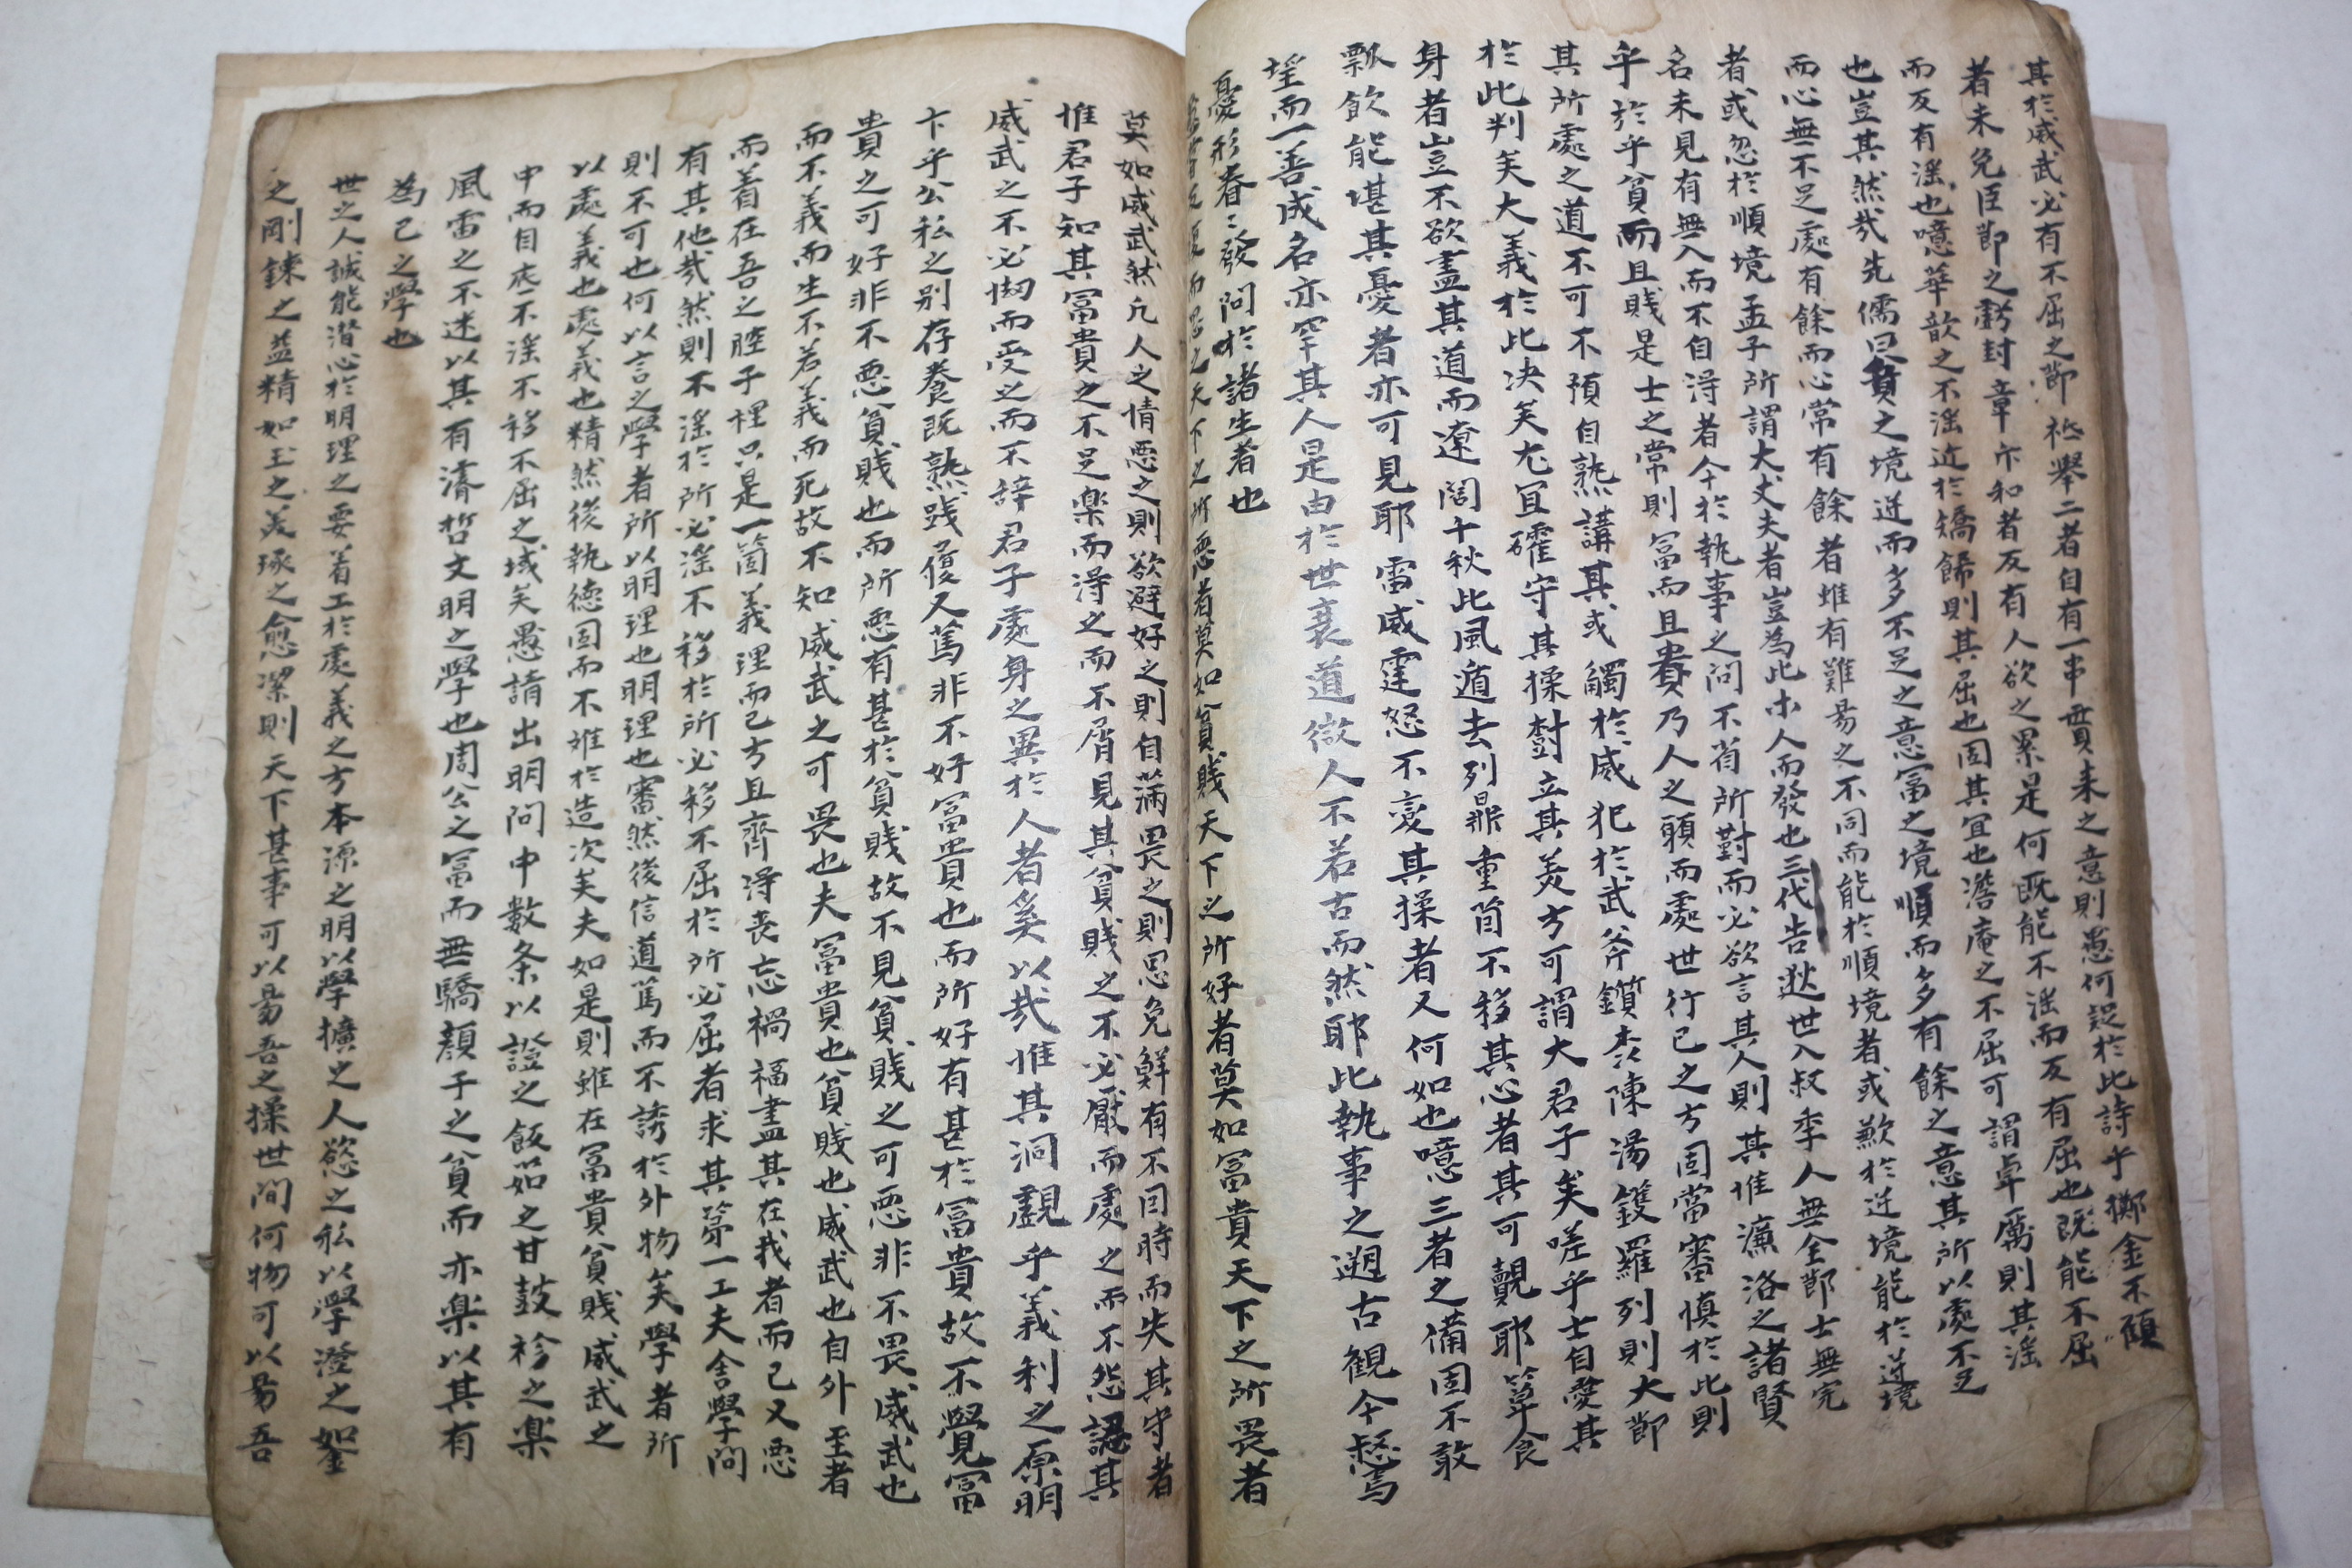 其於威武必有不屈之節 祗擧二者自有一串貫來之意則愚何疑於此詩乎擲金不顧
者未免臣節之虧封章卞和者反有人欲之累是何旣能不滛而反有屈也旣能不屈
而反有滛也噫華歆之不滛近於矯餙則其屈也固其宜也澹庵之不屈可謂卓厲則其滛
也豈其然哉先儒曰貧之境逆而多不足之意冨之境順而多有餘之意其所以處不足
而心無不足處有餘而心常有餘者雖有難昜之不同而能於順境者或歉於逆境能於逆境
者或忽於順境孟子所謂大丈夫者豈爲此朩人而發也三代告逖世入叔季人無全節士無完
名未見有無入而不自淂者今於執事之問不省所對而必欲言其人則其惟濂洛之諸賢
乎於乎貧而且賤是士之常則冨而且貴乃人之願而處世行己之方固當審愼於此則
其所處之道不可不預自熟講其或觸於威犯於武斧鑕森陳湯鑊羅列則大節
於此判矣大義於此决矣尤冝確守其操對立其美方可謂大君子矣嗟乎士自愛其
身者豈不欲盡其道而遼濶千秋此風遁去列鼎重茵不移其心者其可覿耶簞食
瓢飮能堪其憂者亦可見耶雷威霆怒不變其操者又何如也噫三者之備固不敢
望而一善成名亦罕其人是由於世衰道微人不若古而然耶此執事之遡古觀今惄焉
憂形眷〻發問於諸生者也
反復而思之天下之所惡者莫如貧賤天下之所好者莫如冨貴天下之所畏者
莫如威武然凡人之情惡之則欲避好之則自滿畏之則思免鮮有不因時而失其守者
惟君子知其冨貴之不足樂而淂之而不屑見其貧賤之不必厭而處之而不怨認其
威武之不必㤼而受之而不辝君子處身之異於人者奚以哉惟其洞觀乎義利之原明
卞乎公私之別存養旣熟踐履又篤非不好冨貴也而所好有甚於冨貴故不覺冨
貴之可好非不惡貧賤也而所惡有甚於貧賤故不見貧賤之可惡非不畏威武也
而不義而生不若義而死故不知威武之可畏也夫冨貴也貧賤也威武也自外至者
而着在吾之腔子裡只是一箇義理而已方且齊淂喪忘禍福盡其在我者而已又惡
有其他哉然則不滛於所必滛不移於所必移不屈於所必屈者求其第一工夫舍學問
則不可也何以言之學者所以明理也明理也審然後信道篤而不誘於外物矣學者所
以處義也處義也精然後執德固而不難於造次矣夫如是則雖在冨貴貧賤威武之
中而自底不滛不移不屈之域矣愚請出明問中數条以證之飯笳之甘鼓袗之樂
風雷之不迷以其有濬哲文明之學也周公之冨而無驕顔子之貧而亦樂以其有
爲己之學也
世之人誠能潛心於明理之要着工於處義之方本源之明以學擴之人慾之私以學澄之如金
之剛鍊之益精如玉之美琢之愈潔則天下甚事可以昜吾之操世間何物可以昜吾